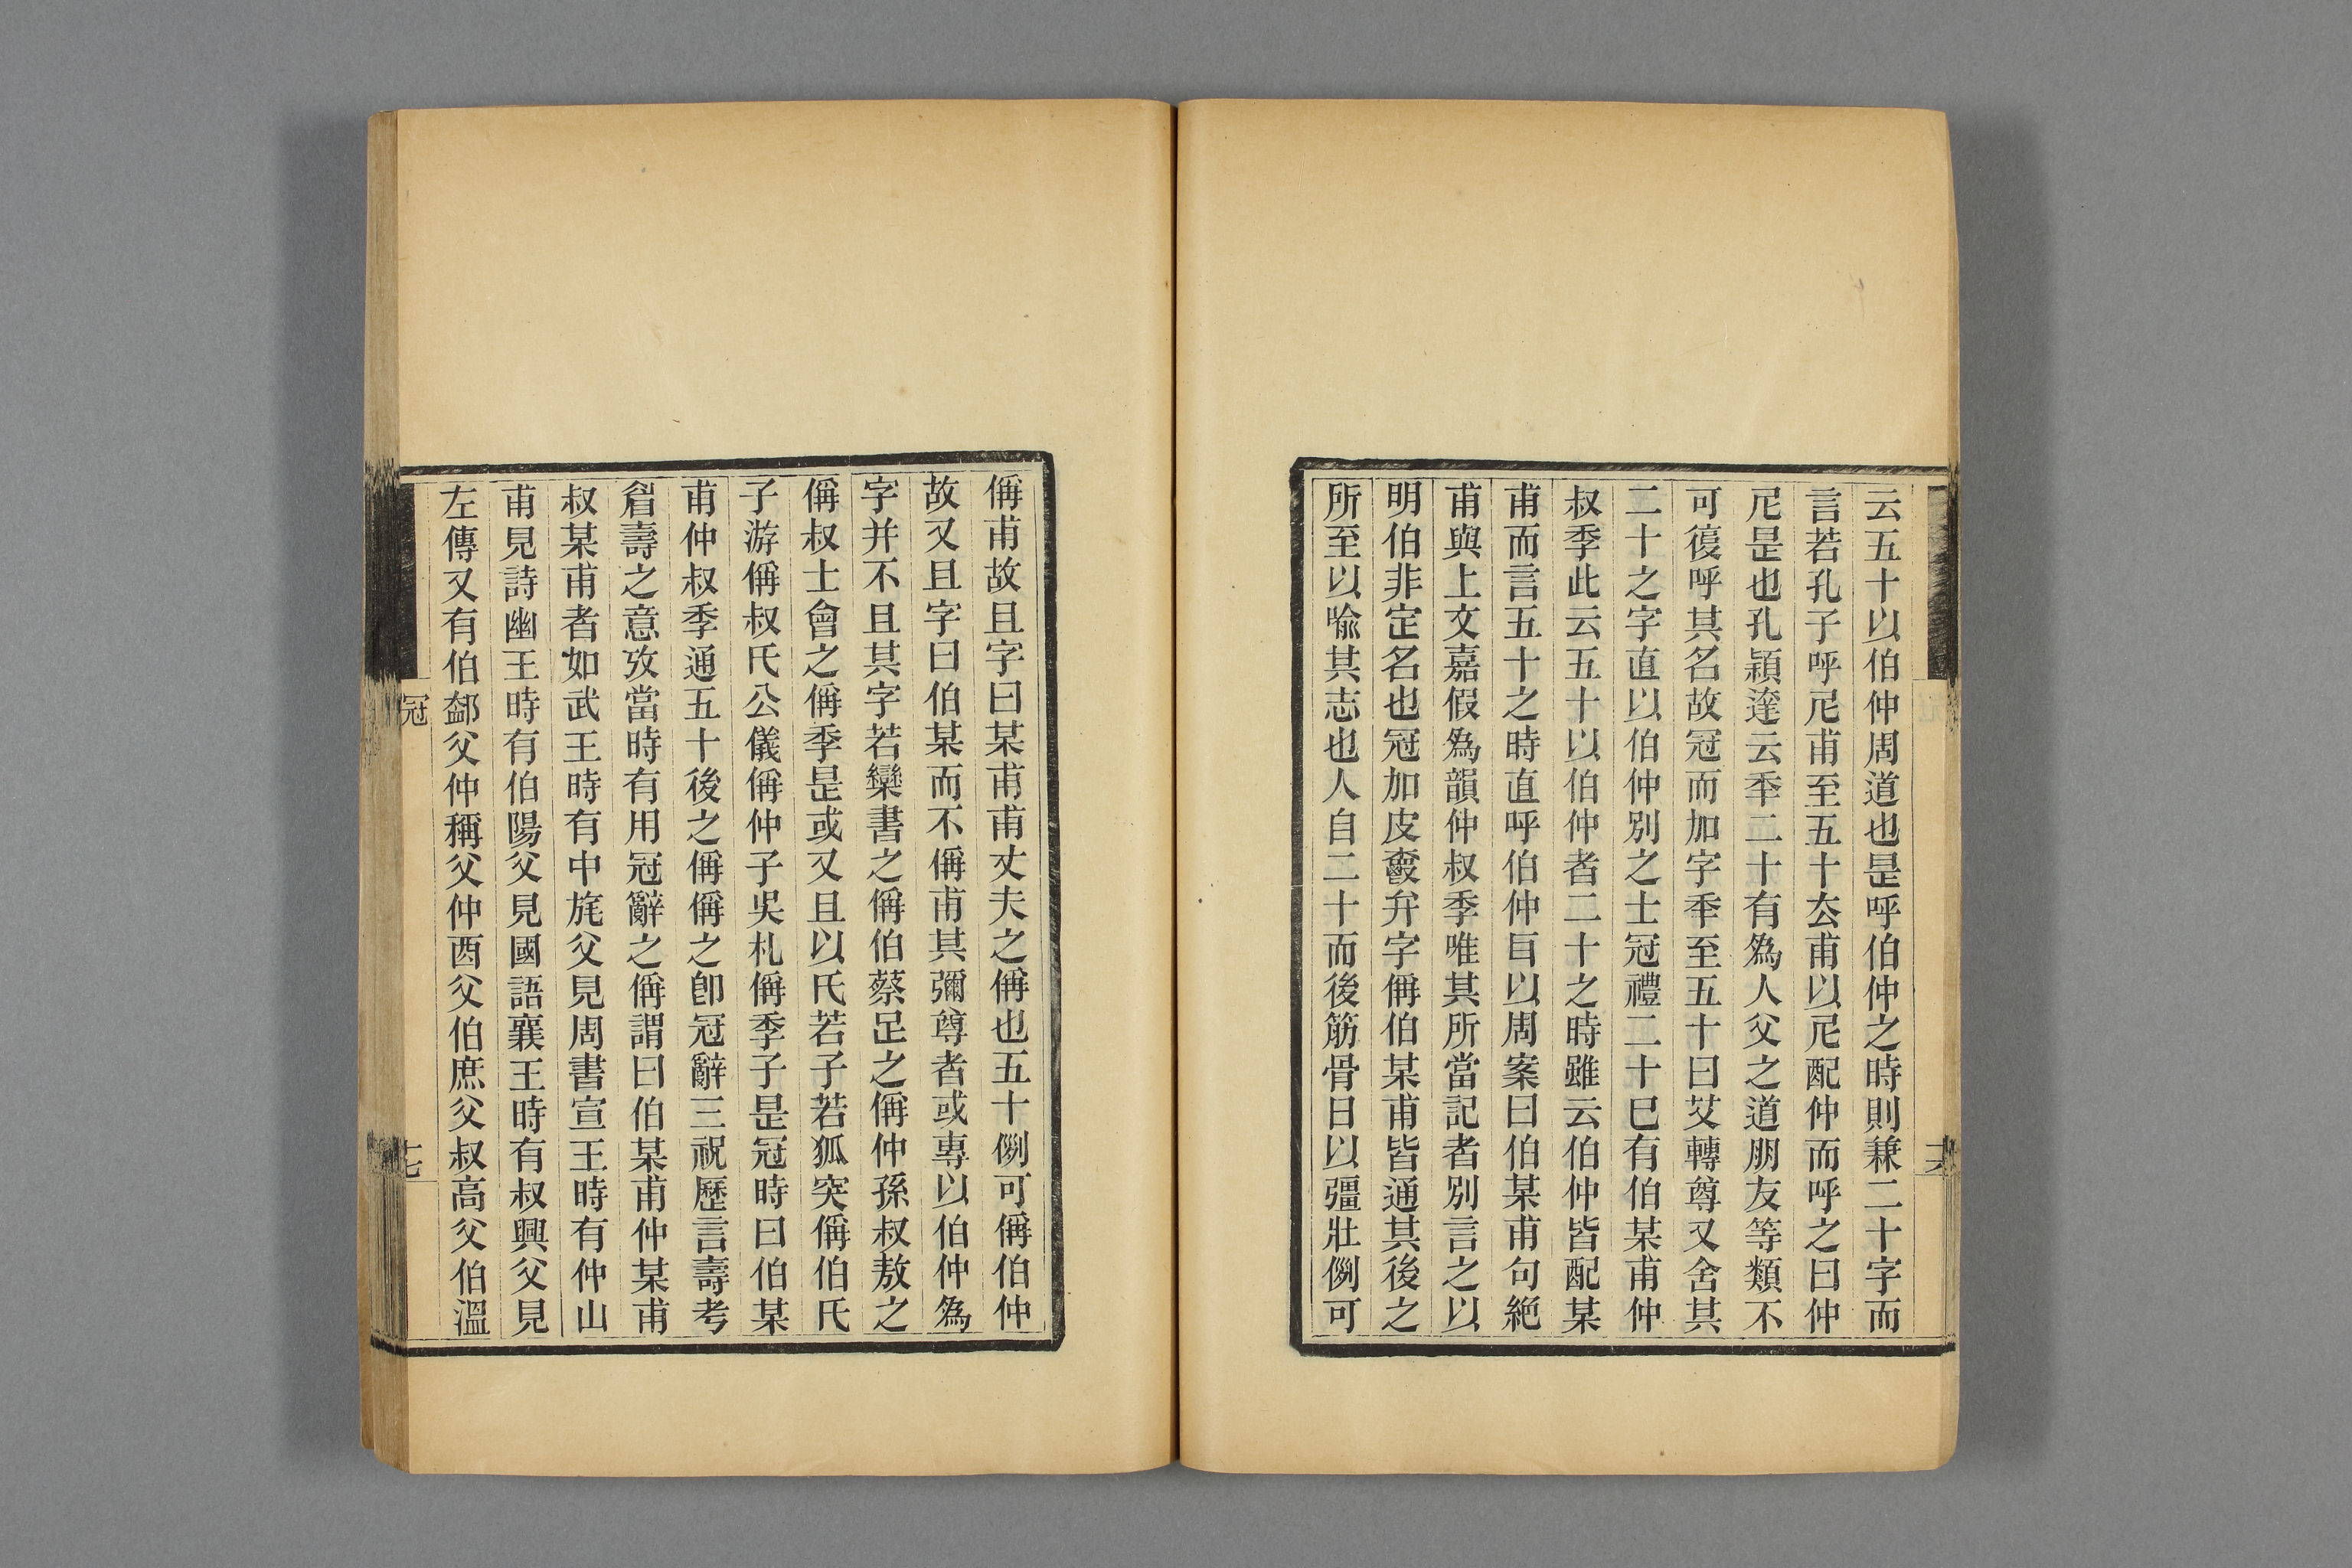 云五十以伯仲周道也是呼伯仲之時則兼二十字而
言若孔子呼尼甫至五十去甫以尼配仲而呼之曰仲
尼是也孔穎達云年二十有為人父之道朋友等類不
可復呼其名故冠而加字年至五十曰艾轉尊又舍其
二十之字直以伯仲別之士冠禮二十已有伯某甫仲
叔季此云五十以伯仲者二十之時雖云伯仲皆配某
甫而言五十之時直呼伯仲㠯以周案曰伯某甫句絶
甫與上文嘉假為韻仲叔季唯其所當記者別言之以
明伯非定名也冠加皮爵弁字偁伯某甫皆通其後之
所至以喩其志也人自二十而後筋骨日以彊壯例可
偁甫故且字曰某甫甫丈夫之偁也五十例可偁伯仲
故又且字曰伯某而不偁甫其彌尊者或專以伯仲為
字并不且其字若欒書之偁伯蔡足之偁仲孫叔敖之
偁叔士會之偁季是或又且以氏若子若狐突偁伯氏
子游偁叔氏公儀偁仲子吳札偁季子是冠時曰伯某
甫仲叔季通五十後之偁偁之卽冠辭三祝歷言壽考
眉壽之意攷當時有用冠辭之偁謂曰伯某甫仲某甫
叔某甫者如武王時有中旄父見周書宣王時有仲山
甫見詩幽王時有伯陽父見國語襄王時有叔興父見
左傳又有伯郤父仲稱父仲酉父伯庶父叔高父伯溫
冠
十七